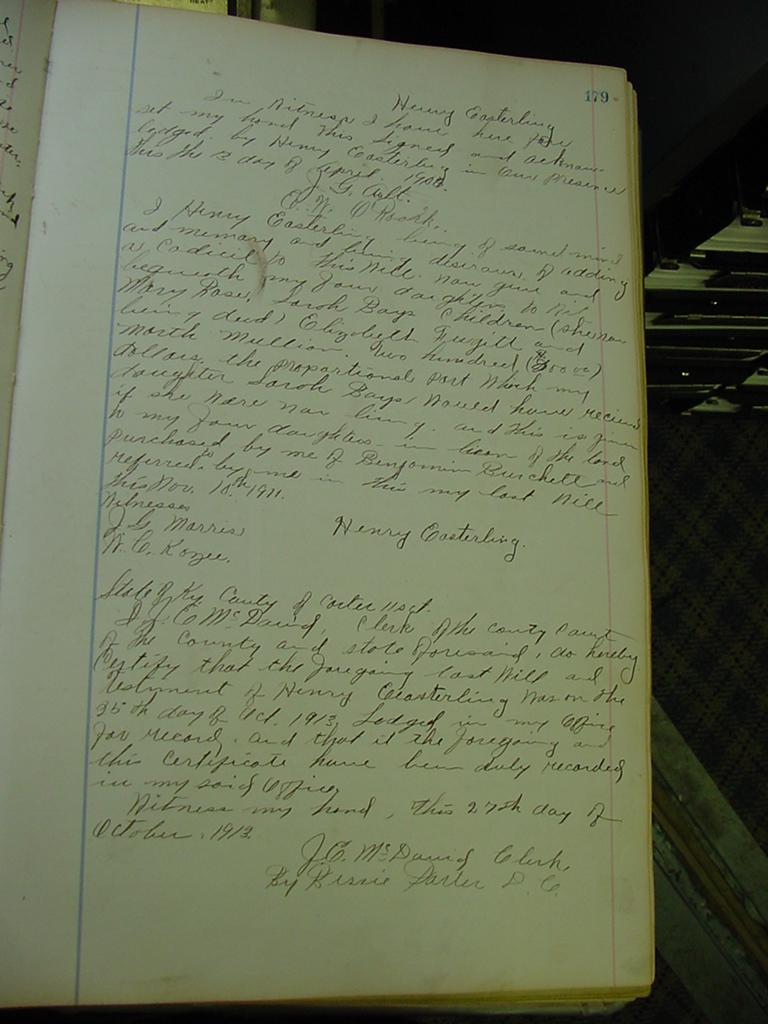 179
Henry Easterling
In Witness I have here for
set my hand this signed and acknow
ledged, by Henry Easterling in our presence
this the 12 day of April 1902.
J. G. Ault.
I Henry Easterling being of sound mind
and memory and being desirous of adding
a Codicil to this Will. now give and
bequeath my four daughters to Wit
Mary Rose, Sarah Bays Children (she now
being dead) Elizabeth Fugitt and
North Mullion. Two hundred ($200 00)
dollars, the proportional part which my
daughter Sarah Bays would have recieved
if she were now living. and this is given
to my four daughters in lieau of the land
purchased by me of Benjamin Burchett and
referred to by me in this my last Will
this Nov. 10th 1911.
Witnesses
J. G. Morris
W. C. Kozee.
Henry Easterling.
State of Ky. County of Carter sct.
I J. E. McDavid, Clerk of the county Court
of the County and state foresaid, do hereby
Certify that the foregoing last Will and
Testment of Henry Easterling was on the
25th day of Oct. 1913, Lodged in my Office
for record. and that it the foregoing and
this Certificate have been duly recorded
in my said Office
Witness my hand, this 27th day of
October, 1913.
J. E. McDavid Clerk,
By Bessie D. C.